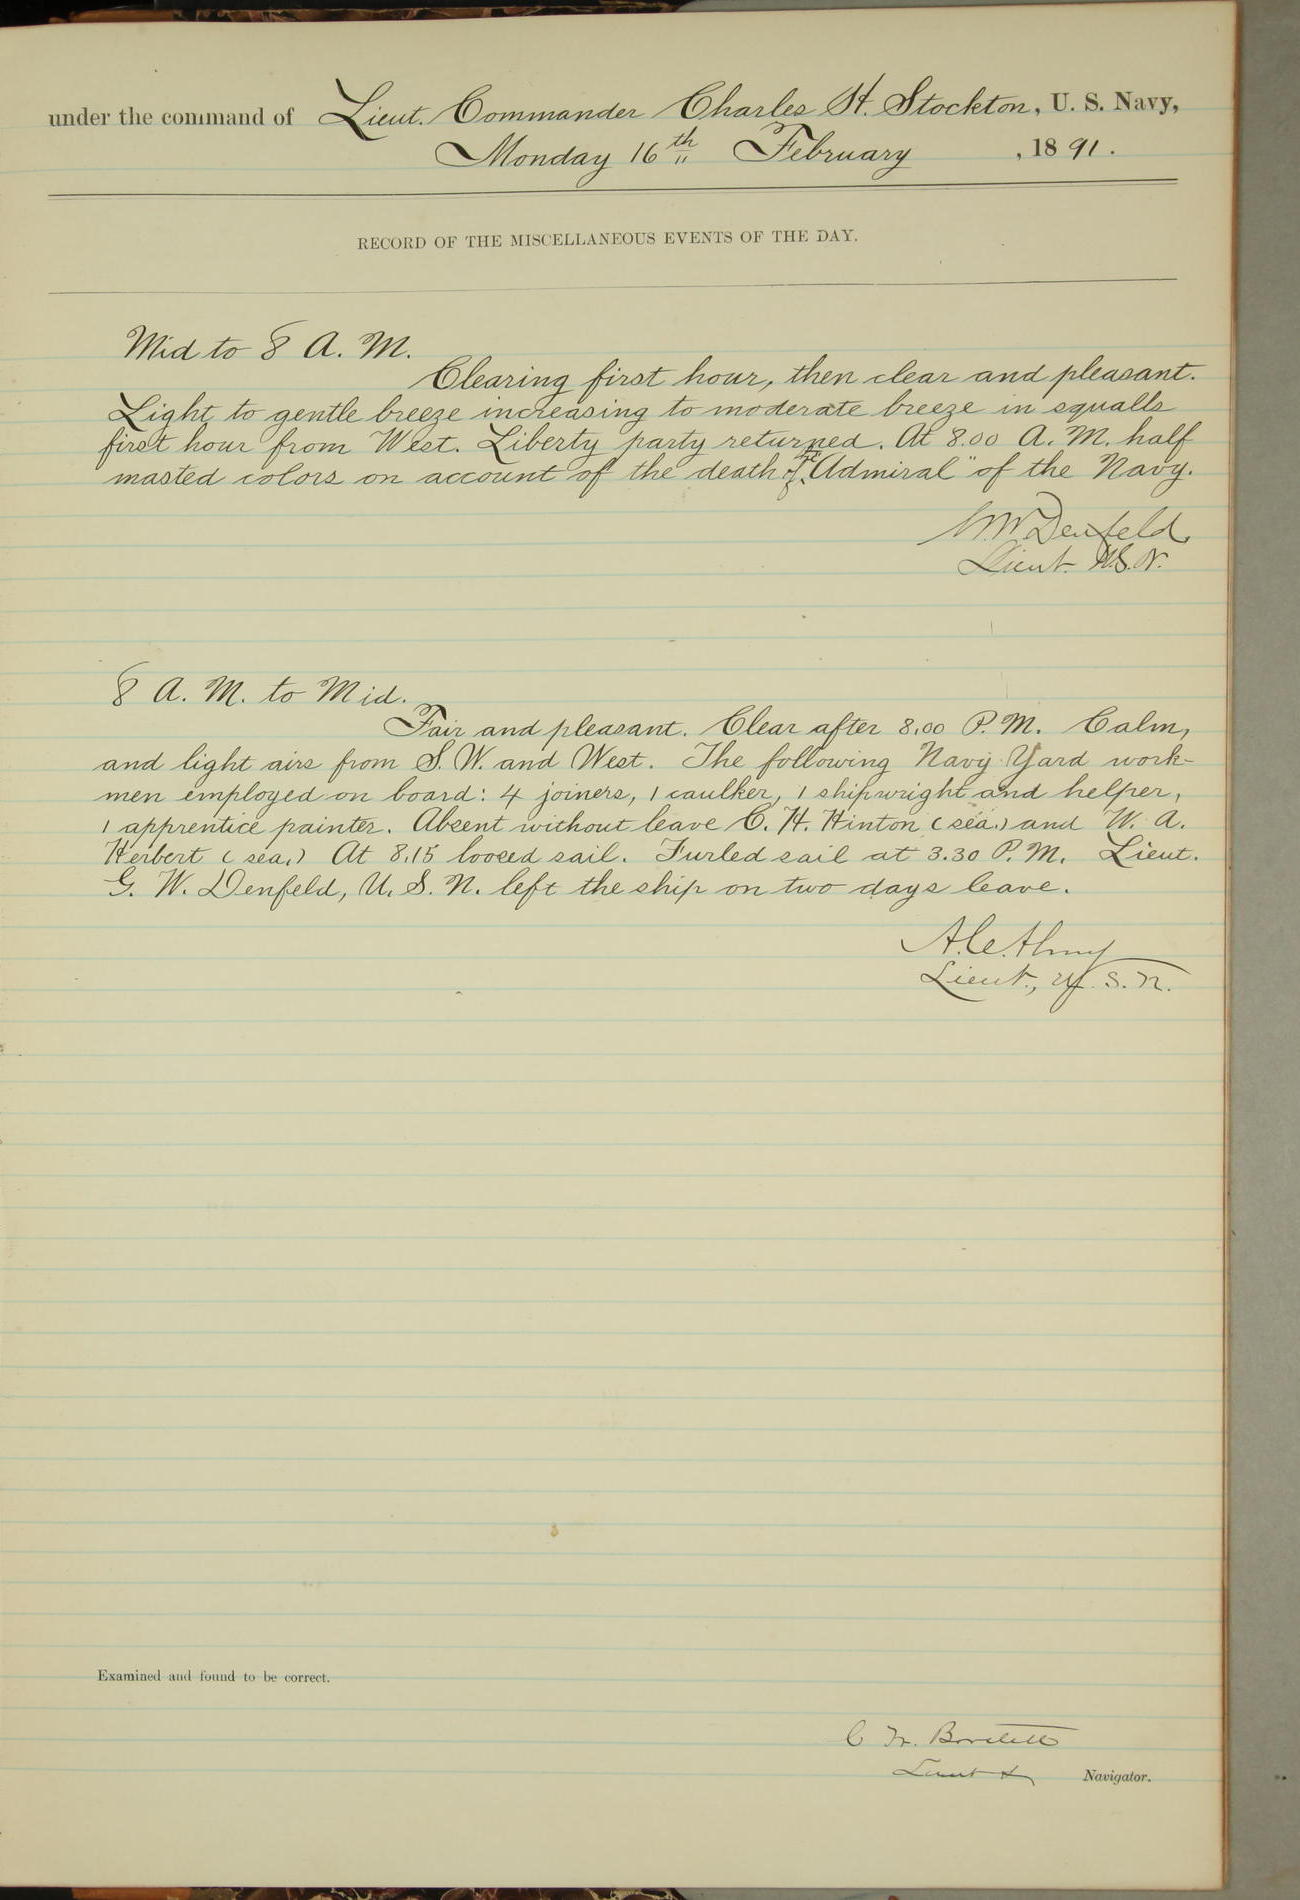 under the command of Lieut. Commander Charles H. Stockton, U. S. Navy,
Monday 16th February, 1891.
RECORD OF THE MISCELLANEOUS EVENTS OF THE DAY.
Mid to 8 A. M.
Clearing first hour, then clear and pleasant.
Light to gentle breeze increasing to moderate breeze in squalls
first hour from West. Liberty party returned. At 8.00 A. M. half
masted colors on account of the death of "The Admiral" of the Navy.
G. W. Denfeld
Lieut. U.S.N.
8 A. M. to Mid.
Fair and pleasant. Clear after 8.00 P. M. Calm,
and light airs from S. W. and West. The following Navy Yard work-
men employed on board: 4 joiners, 1 caulker, 1 shipwright and helper,
1 apprentice painter. Absent without leave C. H. Hinton (sea.) and W. A.
Herbert (sea.) At 8.15 loosed sail. Furled sail at 3.30 P. M. Lieut.
G. W. Denfeld, U. S. N. left the ship on two days leave.
A. C. Almy
Lieut., U. S. N.
Examined and found to be correct.
Lieut &
Navigator.